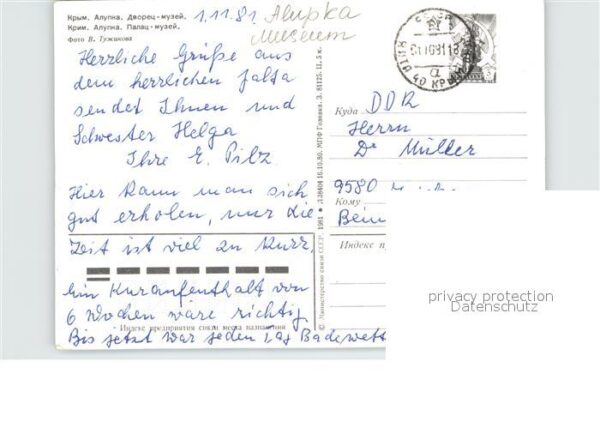 Крым. Алупка. Дворец-музей.
Крим. Алупка. Палац-музей.
Фото В. Тужикова
1.11.81
Alupka
Museum
Herzliche Grüße aus
dem herrlichen Jalta
sendet Ihnen und
Schwester Helga
Ihre E. Pilz
Hier kann man sich
gut erholen, nur die
Zeit ist viel zu kurz.
Ein Kuraufenthalt von
6 Wochen wäre richtig
Bis jetzt war jeden Tag Badewett
Индекс предприятия связи места назначения
© Министерство связи СССР. 1981
16.10.80. МПФ Гознака. З. 81125. Ц. 5 к.
СССР
ЯЛТА 40 КРЫМ
Куда DDR
Herrn
Dr Müller
9580
Кому
Индекс
privacy protection
Datenschutz